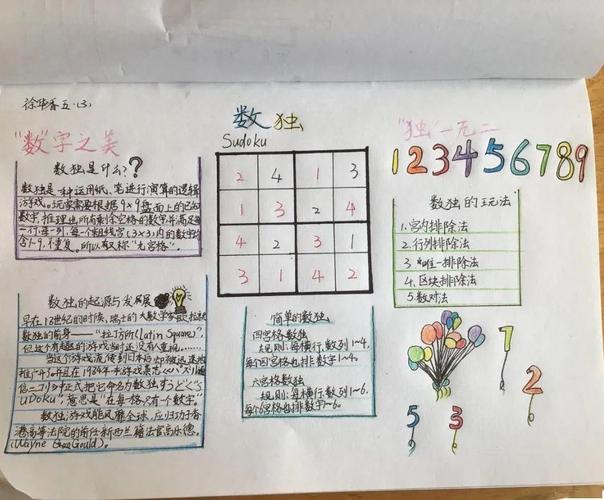 徐华香五.(3)
数独
Sudoku
"数"字之美
"独"一无二
123456789
数独是什么??
数独是一种运用纸、笔进行演算的逻辑
游戏。玩家需要根据9×9盘面上的已知
数字,推理出所有剩余空格的数字并满足每
一行、每一列、每一个粗线宫(3×3)内的数字均
含1-9,不重复。所以又称"九宫格"。
2 4 1 3
1 3 2 4
4 2 3 1
3 1 4 2
数独的玩法
1.宫内排除法
2.行列排除法
3.唯一排除法
4.区块排除法
5.数对法
数独的起源与发展
早在18世纪的时候,瑞士的大数学家
数独的前身——"拉丁方阵(Latin Square)",
但这个有趣的游戏
当这个游戏流传到日本后
推广 并且在1984年
正式把它命名为数独すうどく"S
uDoku",意思是"在每格只有个数字"。
数独游戏能风靡全球,应归功于香
港高等法院的前任新西兰籍法官高乐德.
(Wayne Gould)。
简单的数独
四宫格数独
规则:每横行、数列1~4,
每个四宫格也排数字1~4。
六宫格数独
规则:每横行、数列1~6,
每个6宫格也排数字1~6。
1
2
5
3